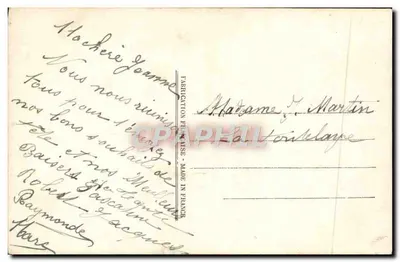 Ma chère Jeanne
Nous nous réunissons
tous pour t'envoyer
nos bons souhaits de
fête et nos Meilleurs
Baisers
Robert Pascaline
Raymonde Jacques
Marc
FABRICATION FRANÇAISE - MADE IN FRANCE
CPARAMA
Madame J. Martin
La